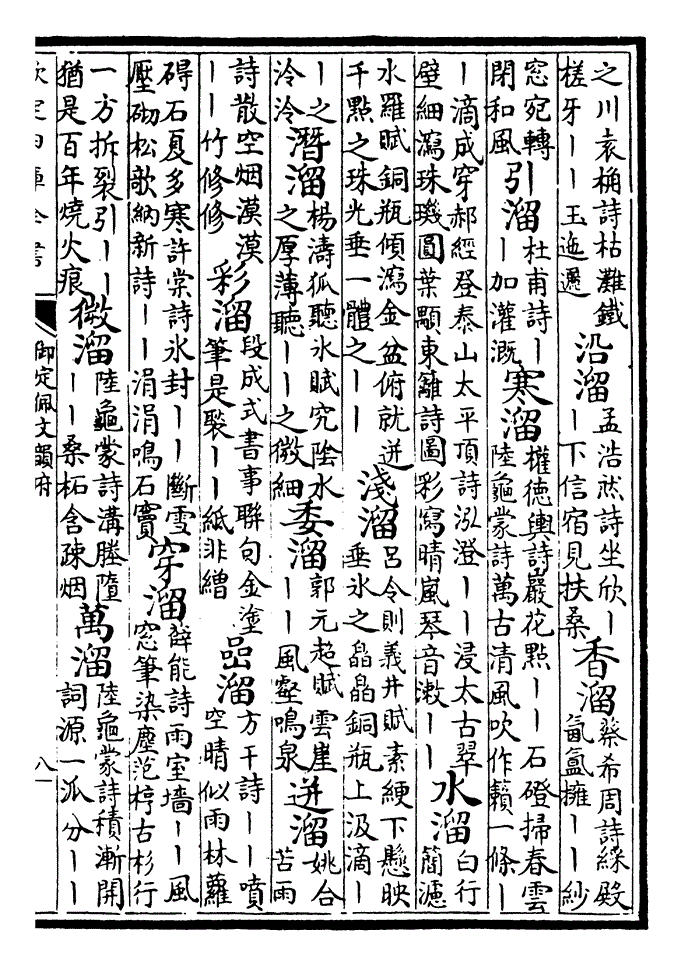 之川袁桷詩枯灘鐵槎牙丨丨玉迤邐 沿溜 孟浩然詩坐欣丨丨下信宿見扶桑 香溜 蔡希周詩綵殿氤氳擁丨丨紗
窓宛轉閉和風 引溜 杜甫詩丨丨加灌溉 寒溜 權德輿詩巖花點丨丨石磴掃春雲陸龜蒙詩萬古清風吹作籟一條丨
丨滴成穿郝經登泰山太平頂詩泓澄丨丨浸太古翠壁細瀉珠璣圓葉顒東籬詩圖彩寫晴嵐琴音漱丨丨 水溜 白行簡濾
水羅賦銅瓶傾瀉金盆俯就迸千點之珠光垂一體之丨丨 淺溜 呂令則義井賦素綆下懸映垂氷之皛皛銅瓶上汲滴丨
丨之泠泠 潛溜 楊濤狐聽氷賦究陰氷之厚薄聽丨丨之微細 委溜 郭元超賦雲崖丨丨風壑鳴泉 迸溜 姚合苦雨
詩散空烟漠漠丨丨竹修修 彩溜 段成式書事聯句金塗筆是褧丨丨紙非繒 喦溜 方干詩丨丨噴空晴似雨林蘿
碍石夏多寒許棠詩氷封丨丨斷雪壓砌松歌納新詩丨丨涓涓鳴石竇 穿溜 薛能詩雨室墻丨丨風窓筆染塵范梈古杉行
一方拆裂引丨丨猶是百年燒火痕 微溜 陸龜蒙詩溝塍墮丨丨桑柘含疎烟 萬溜 陸龜蒙詩積漸開詞源一派分丨丨
欽定四庫全書 御定佩文韻府 八